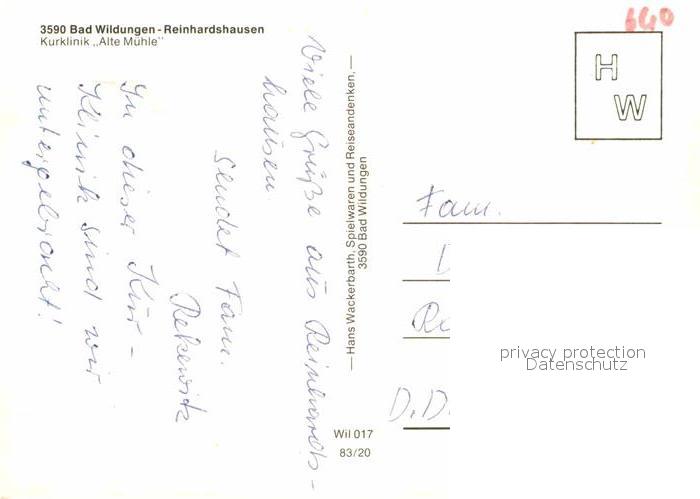 3590 Bad Wildungen - Reinhardshausen
Kurklinik „Alte Mühle"
640
H
W
Viele Grüße aus Reinhards-
hausen.
sendet Fam.
Rekewitz
In dieser Kur-
Klinik sind wir
untergebracht!
— Hans Wackerbarth, Spielwaren und Reiseandenken, —
3590 Bad Wildungen
Fam.
D.D.
privacy protection
Datenschutz
Wil 017
83/20